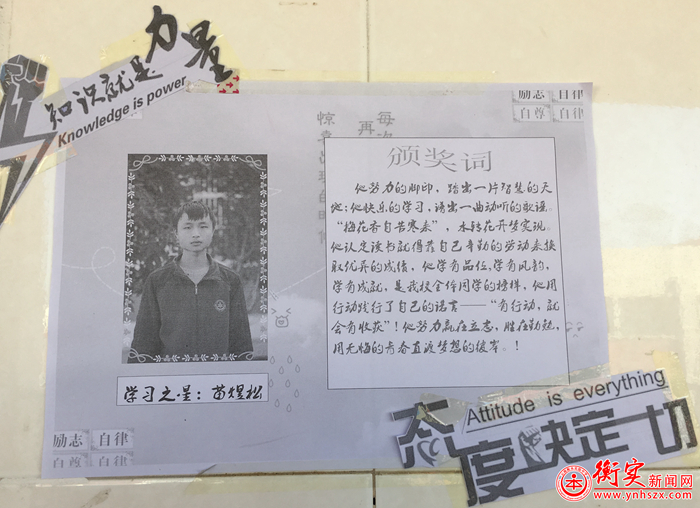 知识就是力量
Knowledge is power
励志 自律
自尊 自律
每次
再
惊喜出现的时
颁奖词
他努力的脚印，踏出一片智慧的天
地；他快乐的学习，谱出一曲动听的歌谣。
“梅花香自苦寒来”，木转花开梦实现。
他认定读书就得靠自己辛勤的劳动来换
取优异的成绩，他学有品位，学有风韵，
学有成就，是我校全体同学的榜样，他用
行动践行了自己的诺言——“有行动，就
会有收获”！他努力赢在立志，胜在勤勉，
用无悔的青春直渡梦想的彼岸。！
学习之星：苗煜松
励志 自律
自尊 自律
Attitude is everything
态度决定一切
衡实新闻网
www.ynhszx.com